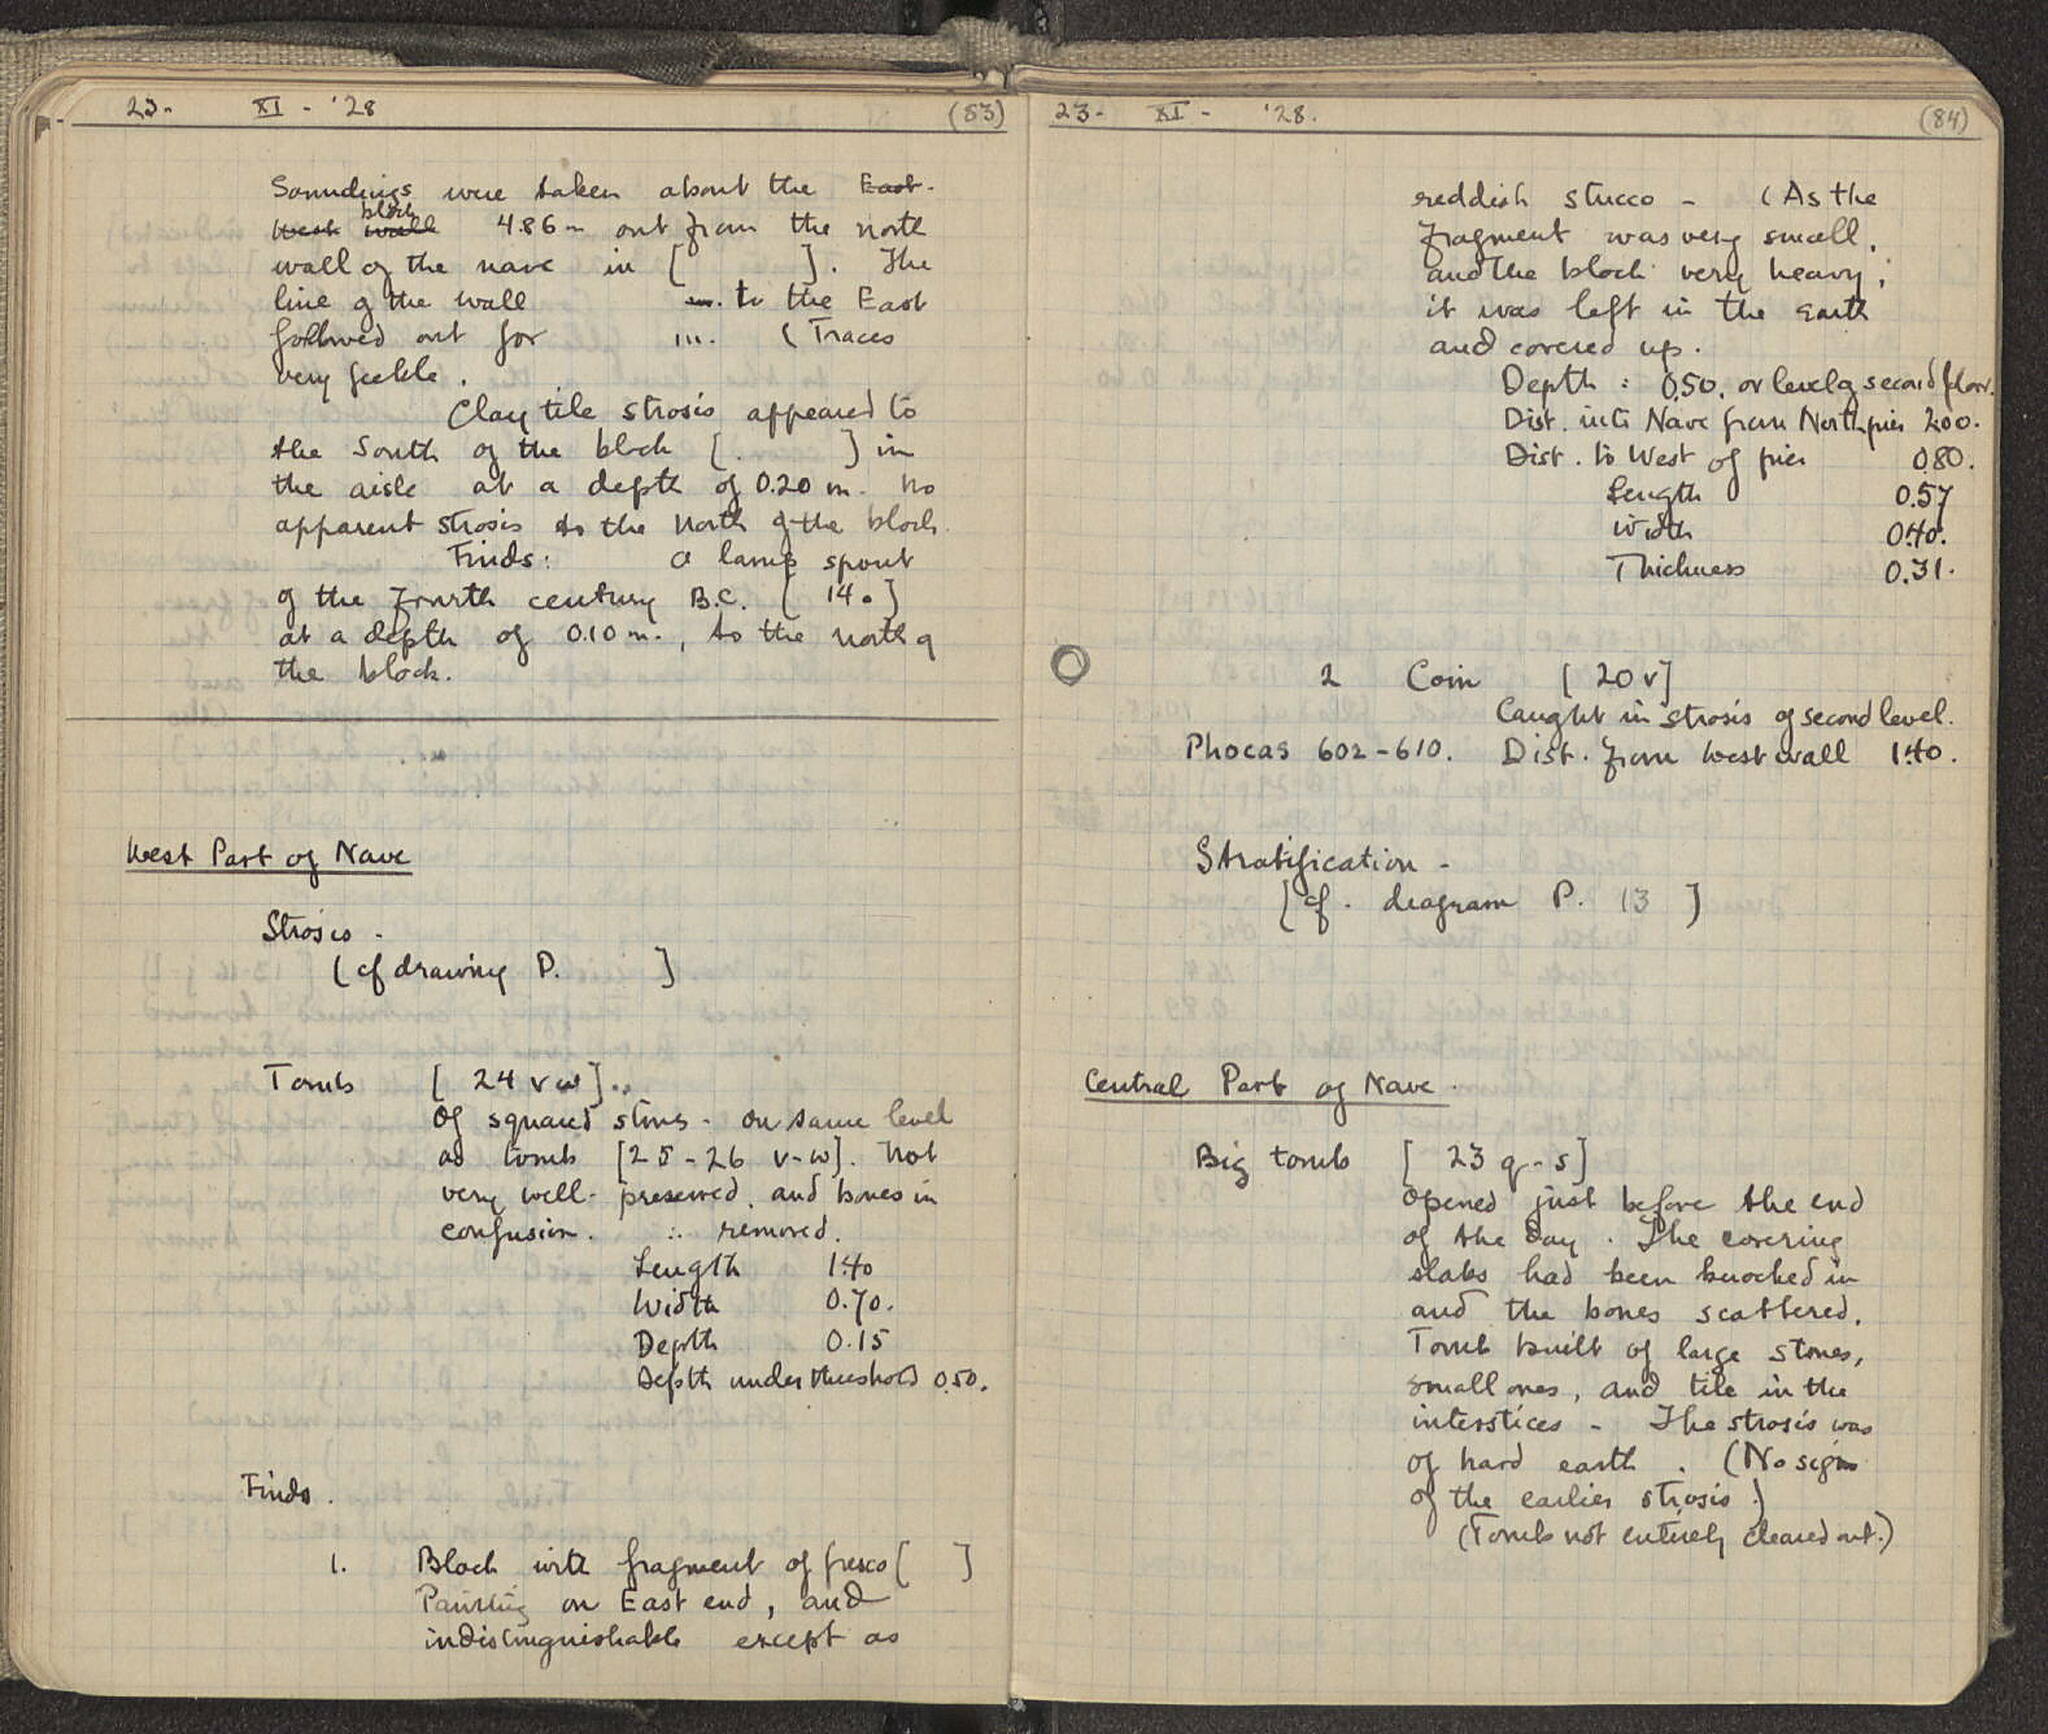 23- XI - '28 (83)
Soundings were taken about the East.
West wall block 4.86 m out from the north
wall of the nave in [ ]. The
line of the wall m. to the East
followed out for ... (Traces
very feeble.
Clay tile strosis appeared to
the South of the block [. ] in
the aisle at a depth of 0.20 m. No
apparent strosis to the north of the block.
Finds: a lamp spout
of the fourth century B.C. [ 14 . ]
at a depth of 0.10 m., to the north of
the block.
West Part of Nave
Strosis -
( cf drawing P. ]
Tomb [ 24 v w ] ..
Of squared stones - on same level
as tomb [25-26 v-w]. Not
very well-preserved, and bones in
confusion. ∴ removed.
Length 1.40
Width 0.70.
Depth 0.15
Depth under threshold 0.50.
Finds.
1. Block with fragment of fresco [ ]
Painting on East end, and
indistinguishable except as
23- XI - '28. (84)
reddish stucco - (As the
fragment was very small,
and the block very heavy,
it was left in the earth
and covered up.
Depth : 0.50. or level of second floor.
Dist. into Nave from North pier 2.00.
Dist. to West of pier 0.80.
Length 0.57
Width 0.40.
Thickness 0.31.
2 Coin [ 20 v]
Caught in strosis of second level.
Phocas 602-610. Dist. from West wall 1.40.
Stratification -
[cf. diagram P. 13 ]
Central Part of Nave.
Big tomb [ 23 q-s]
Opened just before the end
of the day. The covering
slabs had been knocked in
and the bones scattered.
Tomb built of large stones,
small ones, and tile in the
interstices - The strosis was
of hard earth. (No sign
of the earlier strosis.)
(Tomb not entirely cleared out.)